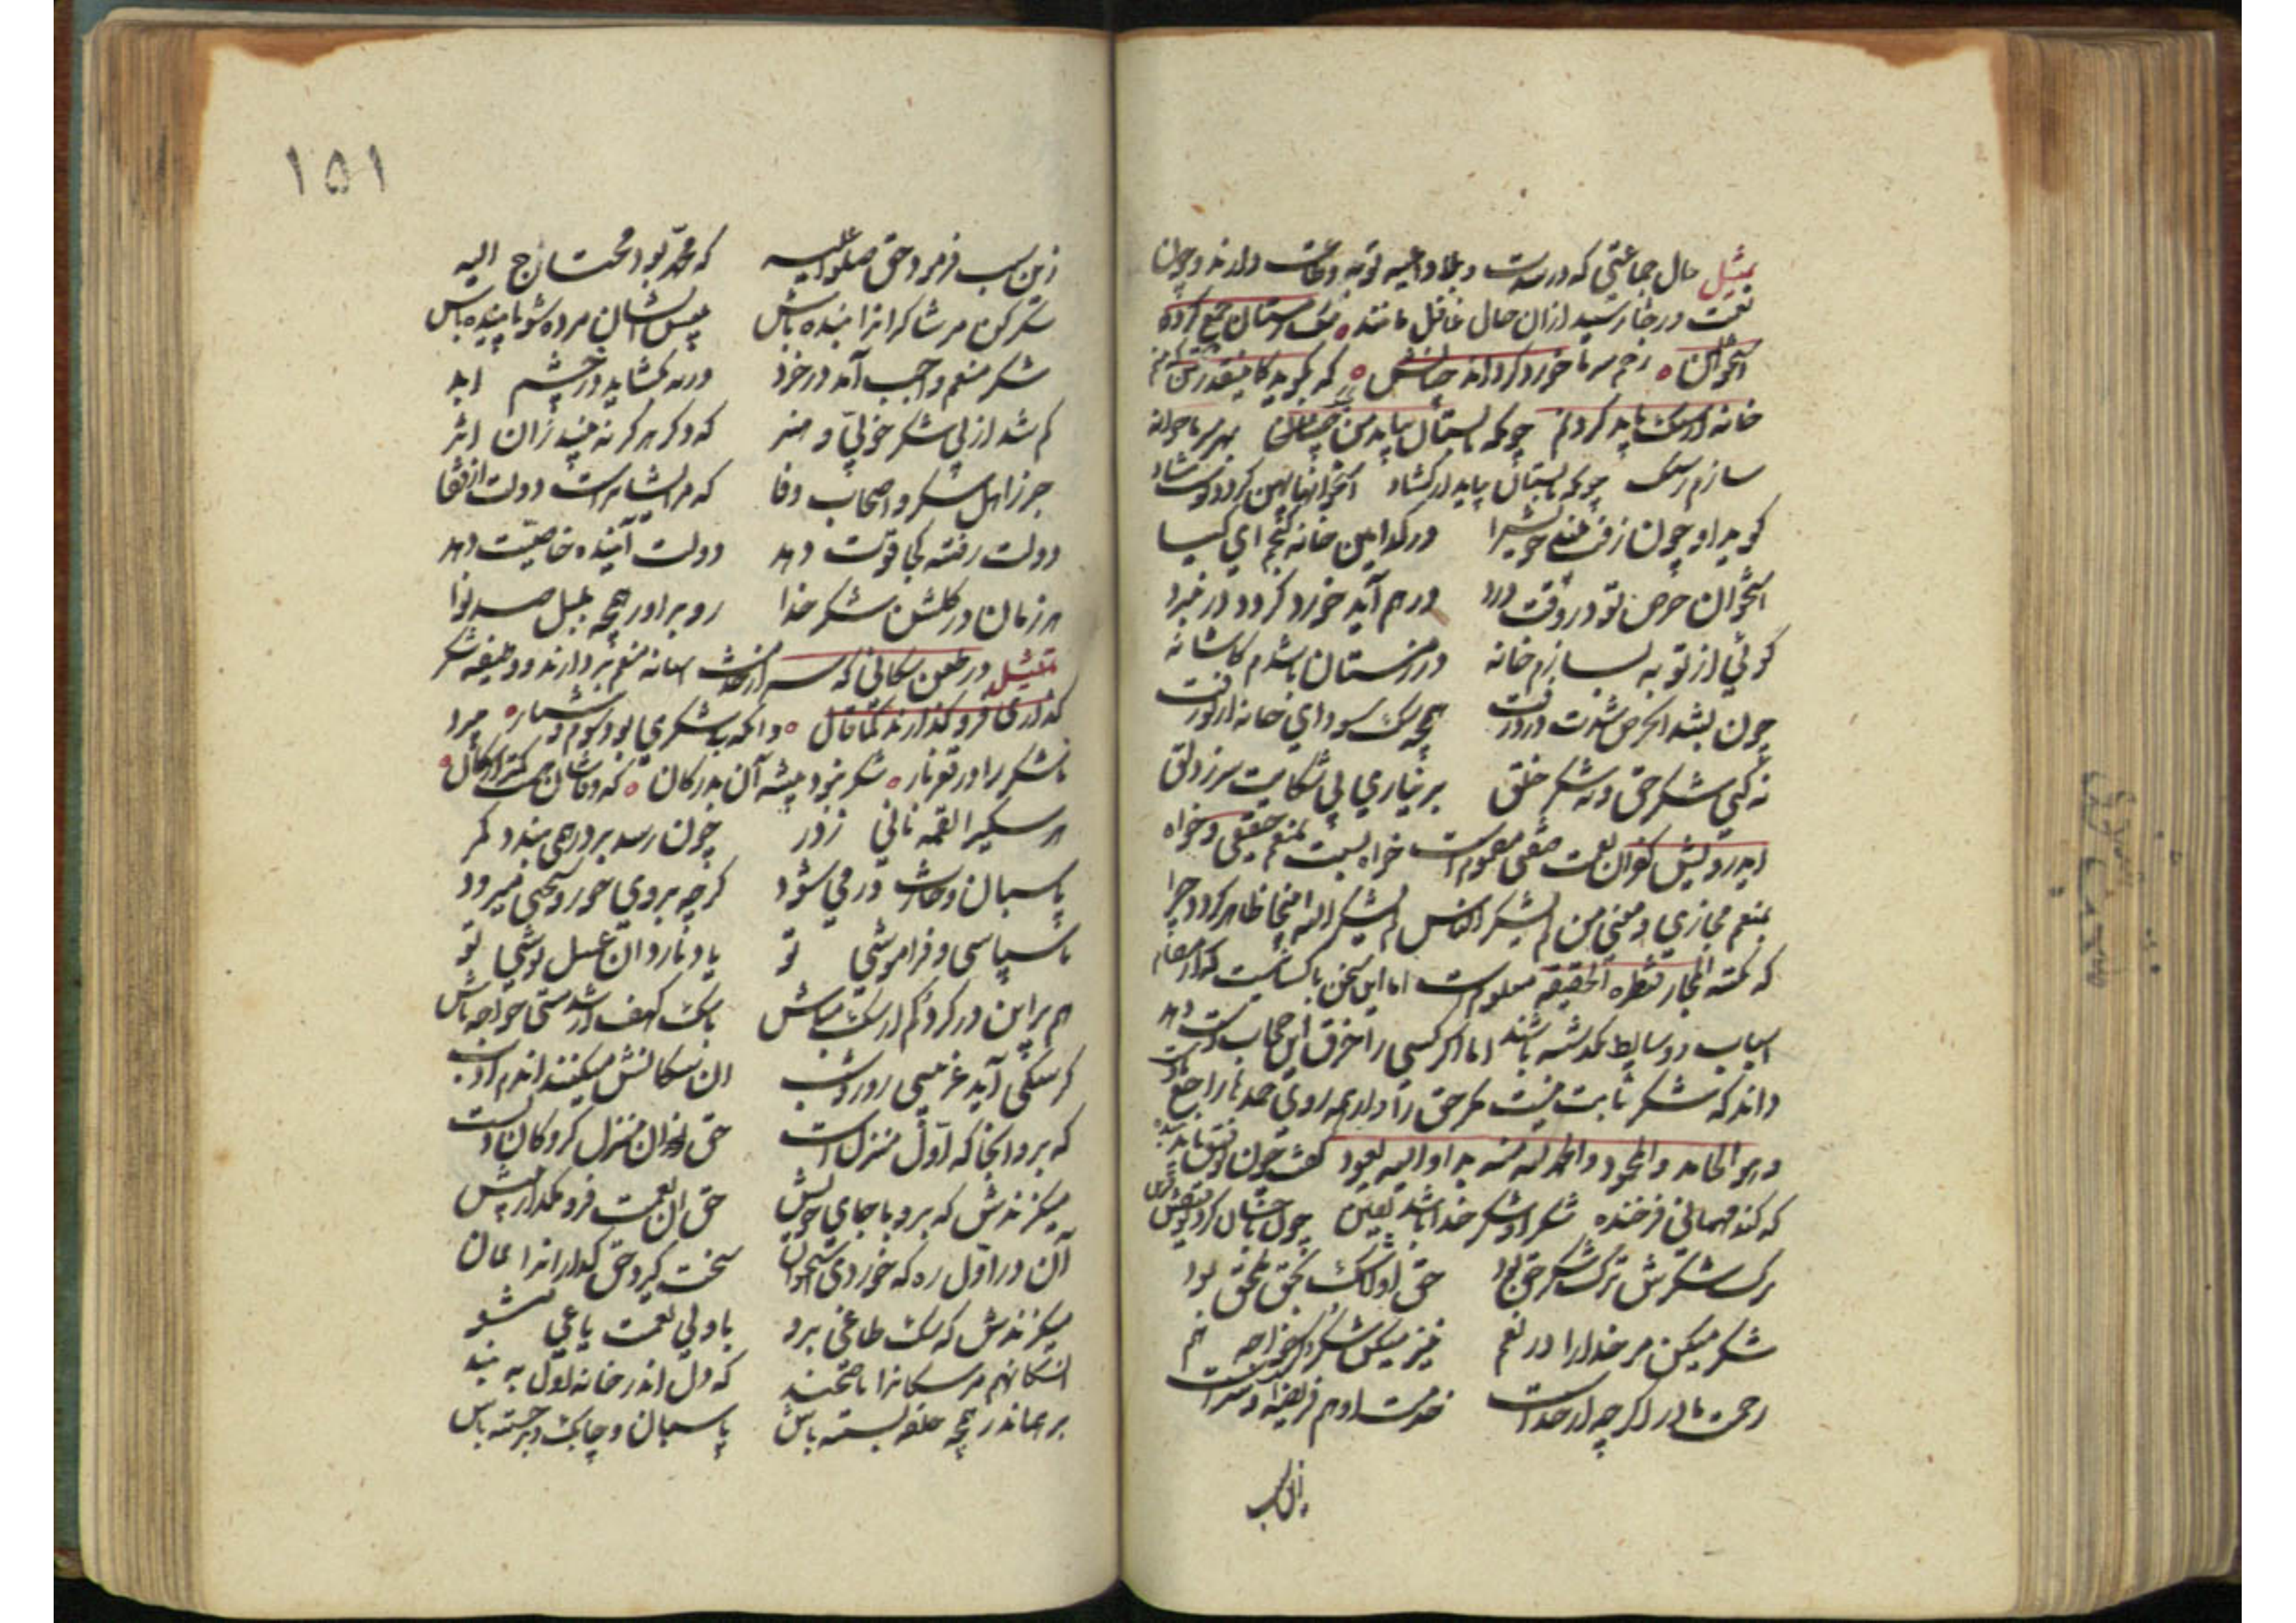 تمثیل حال جماعتی که در شدت و بلا داعیه توبه و طاعت دارند و چون
نعمت در رخا رسید از آن حال غافل مانند سک زمستان جمع کردد
استخوان زخم سرما خورد کرداند چنانش که بکوید کاینقدر تن که منم
خانه از سنک باید کردنم چونکه تابستان بیاید من بچنک بهر سرما خانه
سازم ز سنک چونکه تابستان بیاید از کشاد استخوانها پهن کردد پوست شاد
کوید او چون زفت بیند خویش را در کدامین خانه کنجم ای کیا
استخوان حرص تو در وقت درد درهم آید خورد کردد در نورد
کوئی از توبه بسازم خانه در زمستان باشدم کاشانه
چون بشد درد و شدت آن حرص زفت همچو سک سودای خانه از تو رفت
نه کنی شکر حق و نه شکر خلق بر نیاری بی شکایت سر ز دلق
ای درویش کفران نعمت صفتی مذموم است خواه نسبت بمنعم حقیقی و خواه
بمنعم مجازی و معنی من لم یشکر الناس لم یشکر الله اینجا ظاهر کردد چرا
که نکته المجاز قنطرة الحقیقه معلوم است اما این سخن با کسانیست که از مقام
اسباب و وسایط نکذشته باشند اما اکر کسی را خرق این حجاب دست دهد
داند که شکر ثابت نیست مکر حق را و از همه روی حمدها راجع بدوست
و هو الحامد و المحمود و الحمد لله منه بدا و الیه یعود کفت چون توفیق یابد بنده
که کند مهمانی فرخنده شکر او شکر خدا باشد یقین چون باحسان کرد توفیقش قرین
ترک شکرش ترک شکر حق بود حق او لاشک بحق ملحق بود
شکر میکن مر خدا را در نعم نیز میکن شکر و ذکر خواجه هم
رحمت مادر اکر چه از خداست خدمت او هم فریضه و سزاست
زان سبب
۱۵۱
زین سبب فرمود حق صلوا علیه که محمد بود محتاج الیه
شکر کن مر شاکرانرا بنده باش پیش ایشان مرده شو پاینده باش
شکر منعم واجب آید در خرد ورنه بکشاید در خشم ابد
کم شد از بی شکر خوبی و هنر که دکر هرکز نه بیند زان اثر
جز ز اهل شکر و اصحاب وفا که مر ایشانراست دولت از قفا
دولت رفته کجا قوت دهد دولت آینده خاصیت دهد
هر زمان در کلشن شکر خدا رو برآور همچو بلبل صد نوا
تمثیل در طعن سکانی که سر از خدمت آستانه منعم بردارند و وظیفه شکر
کذاری فرو کذارند کما قال و آنکه بی شکری بود شوم و شنار میبرد
ناشکر را در قعر نار شکر نبود پیشه آن بدرکان که وفاشان هست کمتر از سکان
هر سکی را لقمه نانی ز در چون رسد بر در همی بندد کمر
پاسبان و حارث در می شود کرچه بر وی جور و سختی میرود
ناسپاسی و فراموشی تو یاد نارد آن عسل نوشی تو
هم بر این در کرد کم از سک مباش با سک کهف ار شدستی خواجه تاش
کر سکی آید غریبی روز و شب آن سکانش میکنند اندم ادب
که برو آنجا که اول منزلست حق آن منزل کروکان دلست
میکزندش که برو با جای خویش حق آن نعمت فرو مکذار بیش
آن در اول ره که خوردی استخوان سخت کیر و حق کذار آنرا ممان
میکزندش که سک طاغی برو با ولی نعمت یاغی مشو
آن سکان هم مر سکانرا ناصحند که دل اندر خانه اول ببند
بر همان در همچو حلقه بسته باش پاسبان و چابک و برجسته باش